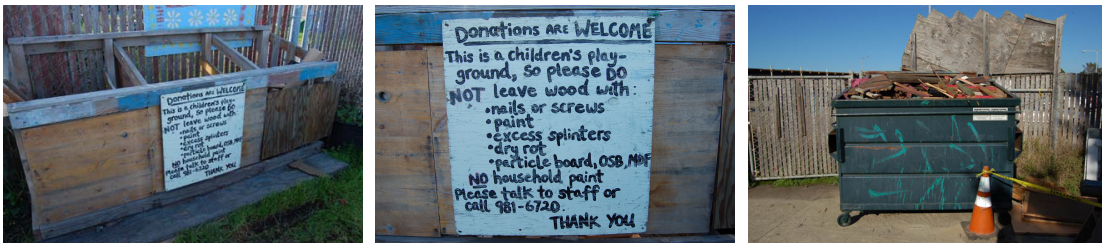 Donations ARE WELCOME
This is a children's play-
ground, so please DO
NOT leave wood with:
•nails or screws
•paint
•excess splinters
•dry rot
•particle board, OSB, MDF
NO household paint
Please talk to staff or
call 981-6720
THANK YOU
Donations ARE WELCOME
This is a children's play-
ground, so please DO
NOT leave wood with:
•nails or screws
•paint
•excess splinters
•dry rot
•particle board, OSB, MDF
NO household paint
Please talk to staff or
call 981-6720.
THANK YOU